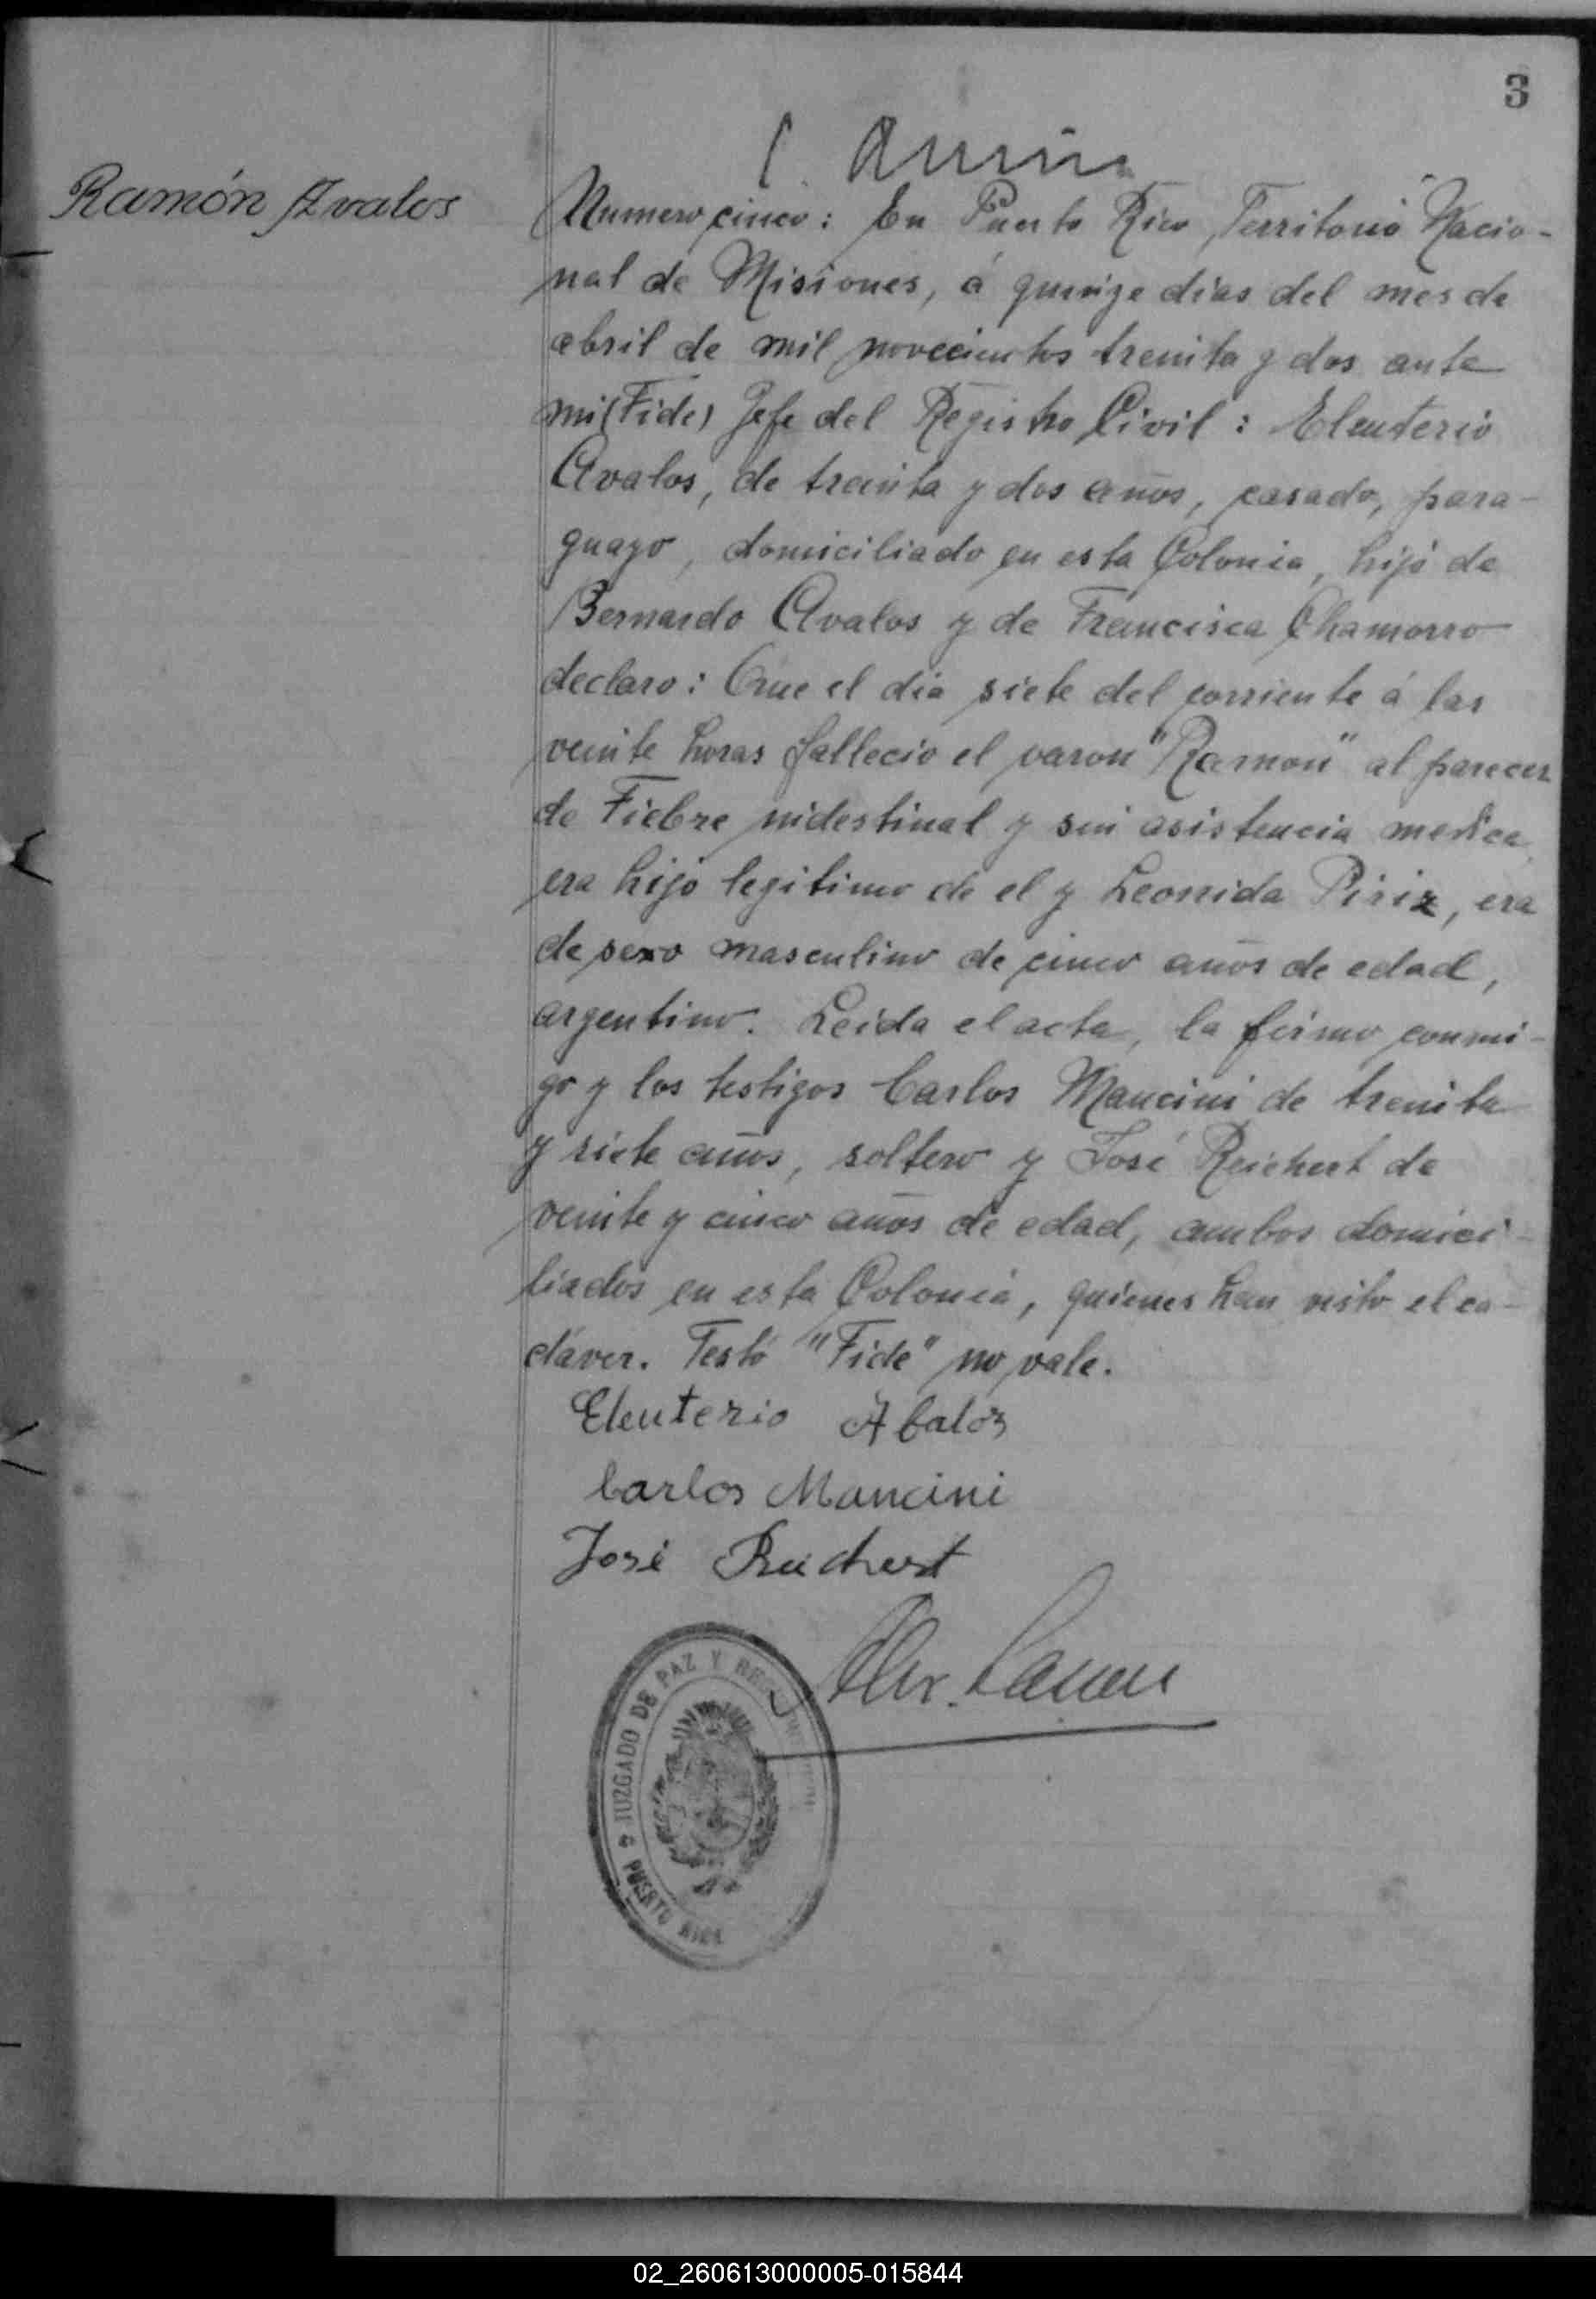 3
Ramón Avalos
Numero cinco: En Puerto Rico, Territorio Nacio-
nal de Misiones, á quinze dias del mes de
abril de mil novecientos treinta y dos ante
mi (Fide) Jefe del Registro Civil: Eleuterio
Avalos, de treinta y dos años, casado, para-
guayo, domiciliado en esta Colonia, hijo de
Bernardo Avalos y de Francisca Chamorro
declaro: Que el dia siete del corriente á las
veinte horas fallecio el varon "Ramon" al parecer
de Fiebre y sin asistencia medica,
era hijo legitimo de el y Leonida Piriz, era
de sexo masculino de cinco años de edad,
argentino. Leida el acta, la firmo conmi-
go y los testigos Carlos Mancini de treinta
y siete años, soltero y José Reichert de
veinte y cinco años de edad, ambos domici-
liados en esta Colonia, quienes han visto el ca-
dáver. Testó "Fide" no vale.
Eleuterio Abalos
Carlos Mancini
José Reichert
JUZGADO DE PAZ Y
PUERTO RICO
02_260613000005-015844